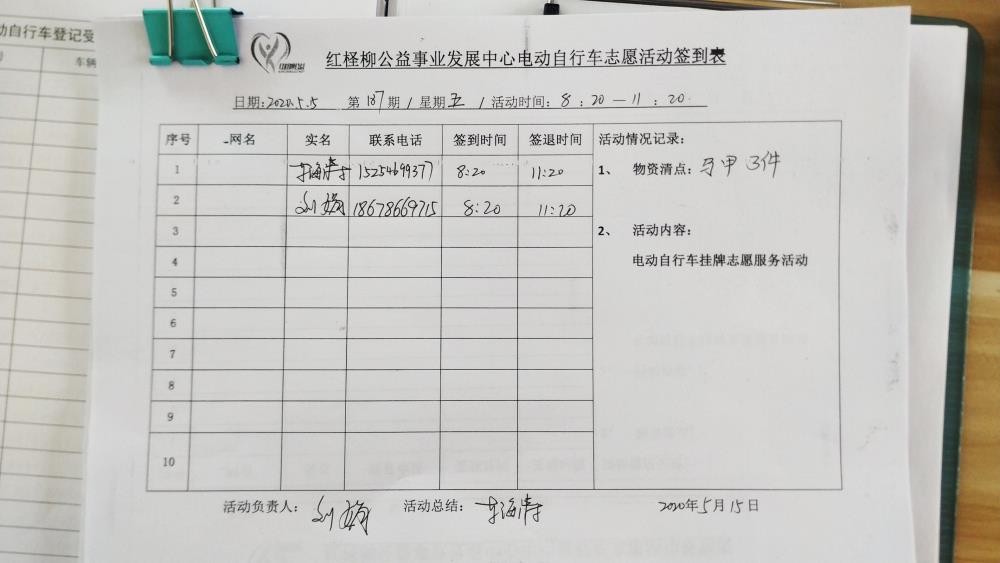 动自行车登记受
车辆
红柽柳公益事业发展中心电动自行车志愿活动签到表
日期:2020.5.5 第187期/星期五/活动时间:8:20—11:20
序号 -网名 实名 联系电话 签到时间 签退时间
1 15254699377 8:20 11:20
2 刘 18678669715 8:20 11:20
3
4
5
6
7
8
9
10
活动情况记录:
1、 物资清点:马甲3件
2、 活动内容:
电动自行车挂牌志愿服务活动
活动负责人: 刘 活动总结: 2020年5月15日